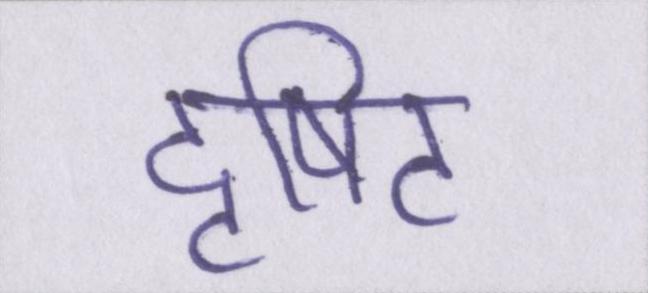 दृष्टि